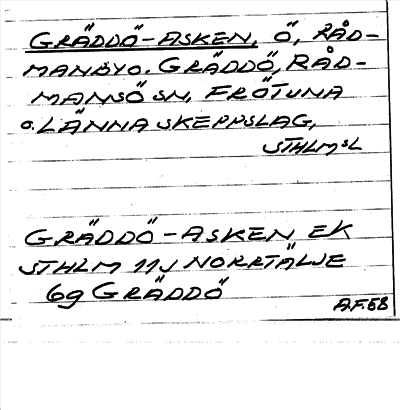 GRÄDDÖ-ASKEN, Ö, RÅD-
MANBY O. GRÄDDÖ, RÅD-
MANSÖ SN, FRÖTUNA
O. LÄNNA SKEPPSLAG,
STHLMS L
GRÄDDÖ-ASKEN EK
STHLM 11J NORRTÄLJE
6g GRÄDDÖ
AF.58